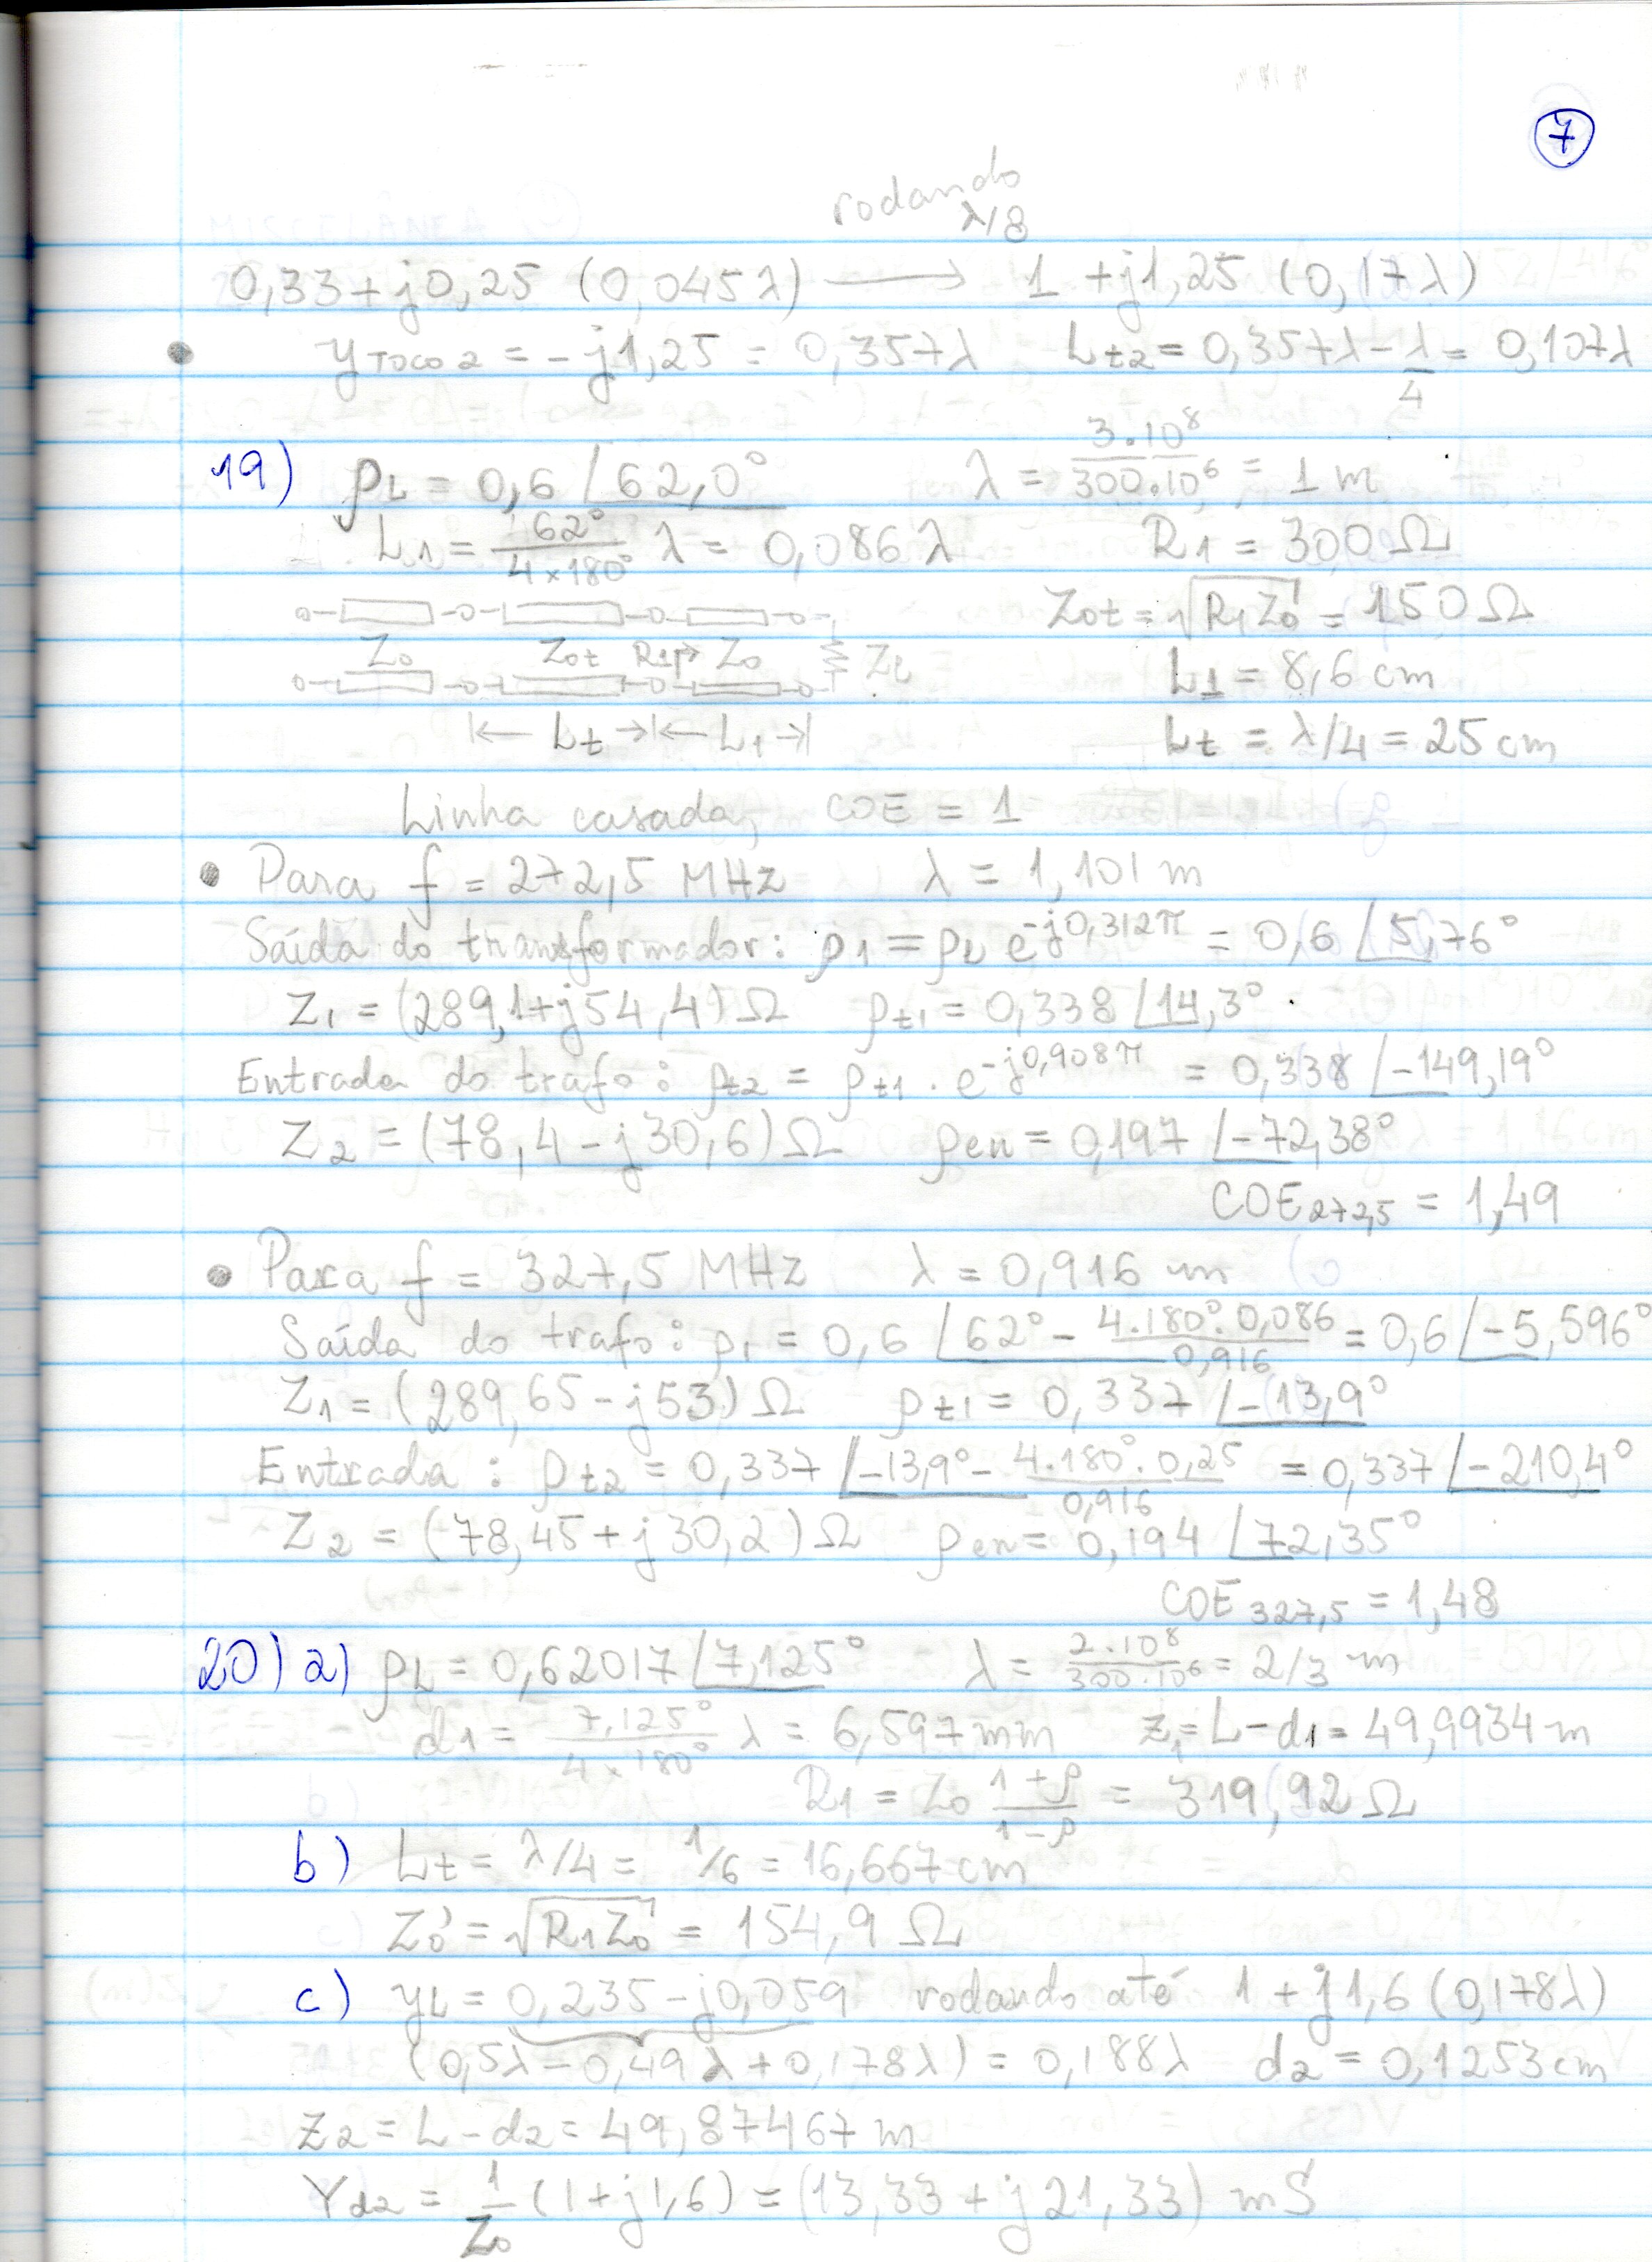 7
rodando
λ/8
0,33+j0,25 (0,045λ) ⟶ 1 +j1,25 (0,17λ)
• yTOCO 2 = -j1,25 = 0,357λ Lt2 = 0,357λ - λ/4 = 0,107λ
19) ρL = 0,6 ∠62,0° λ = 3·10⁸/300·10⁶ = 1 m
L1 = 62°/4×180° λ = 0,086λ R1 = 300Ω
Zot = √R1Z0 = 150Ω
Z0 Zot R1 Z0 ZL
L1 = 8,6 cm
|← Lt →|← L1 →| Lt = λ/4 = 25 cm
Linha casada, COE = 1
• Para f = 272,5 MHz λ = 1,101 m
Saída do transformador: ρ1 = ρL e^-j0,312π = 0,6 ∠5,76°
Z1 = (289,1+j54,4)Ω ρt1 = 0,338 ∠14,3°
Entrada do trafo: ρt2 = ρt1 . e^-j0,908π = 0,338 ∠-149,19°
Z2 = (78,4 - j30,6)Ω ρen = 0,197 ∠-72,38°
COE272,5 = 1,49
• Para f = 327,5 MHz λ = 0,916 m
Saída do trafo: ρ1 = 0,6 ∠62° - 4.180°.0,086/0,916 = 0,6 ∠-5,596°
Z1 = (289,65 - j53)Ω ρt1 = 0,337 ∠-13,9°
Entrada : ρt2 = 0,337 ∠-13,9° - 4.180°.0,25/0,916 = 0,337 ∠-210,4°
Z2 = (78,45 + j30,2)Ω ρen = 0,194 ∠72,35°
COE 327,5 = 1,48
20) a) ρL = 0,62017 ∠7,125° λ = 2·10⁸/300·10⁶ = 2/3 m
d1 = 7,125°/4×180° λ = 6,597mm z1 = L - d1 = 49,9934 m
R1 = Z0 1+ρ/1-ρ = 319,92 Ω
b) Lt = λ/4 = 1/6 = 16,667cm
Z0' = √R1Z0 = 154,9 Ω
c) yL = 0,235 - j0,059 rodando até 1 + j1,6 (0,178λ)
(0,5λ - 0,49λ + 0,178λ) = 0,188λ d2 = 0,1253cm
Z2 = L - d2 = 49,87467 m
Yd2 = 1/Z0 (1+j1,6) = (13,33 + j21,33) mS